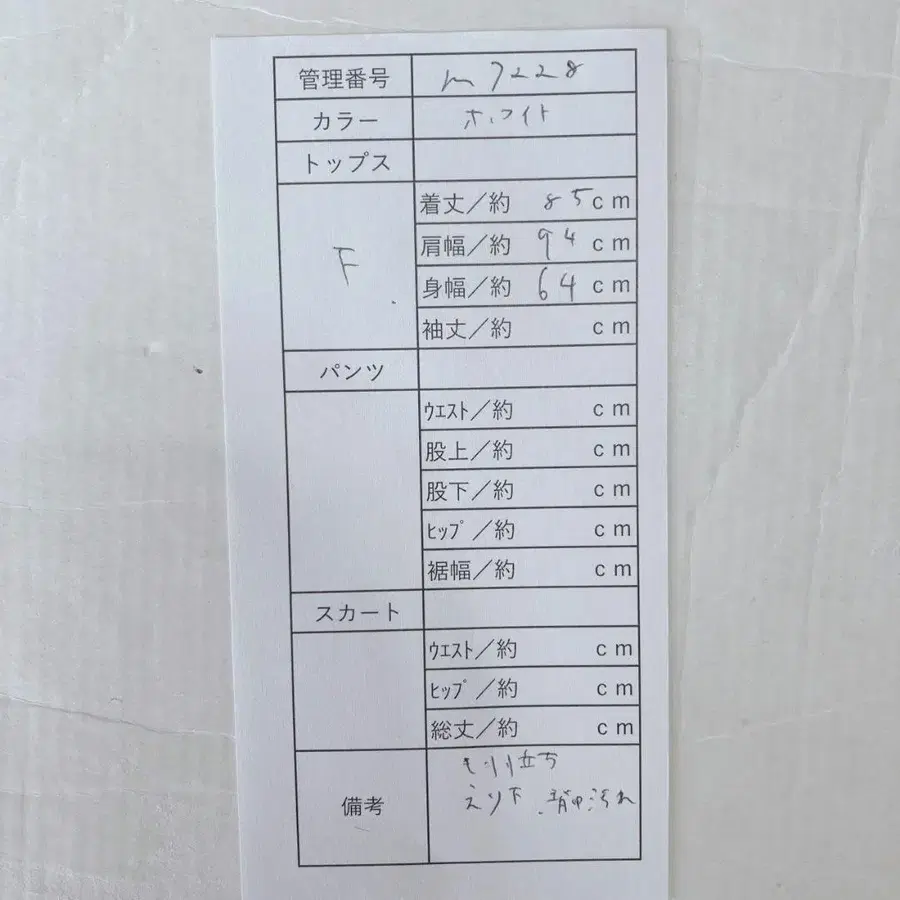 管理番号 m7228
カラー ホワイト
トップス
F
着丈／約 85cm
肩幅／約 94cm
身幅／約 64cm
袖丈／約 cm
パンツ
ウエスト／約 cm
股上／約 cm
股下／約 cm
ヒップ／約 cm
裾幅／約 cm
スカート
ウエスト／約 cm
ヒップ／約 cm
総丈／約 cm
備考
毛羽立ち
えり下 背中汚れ